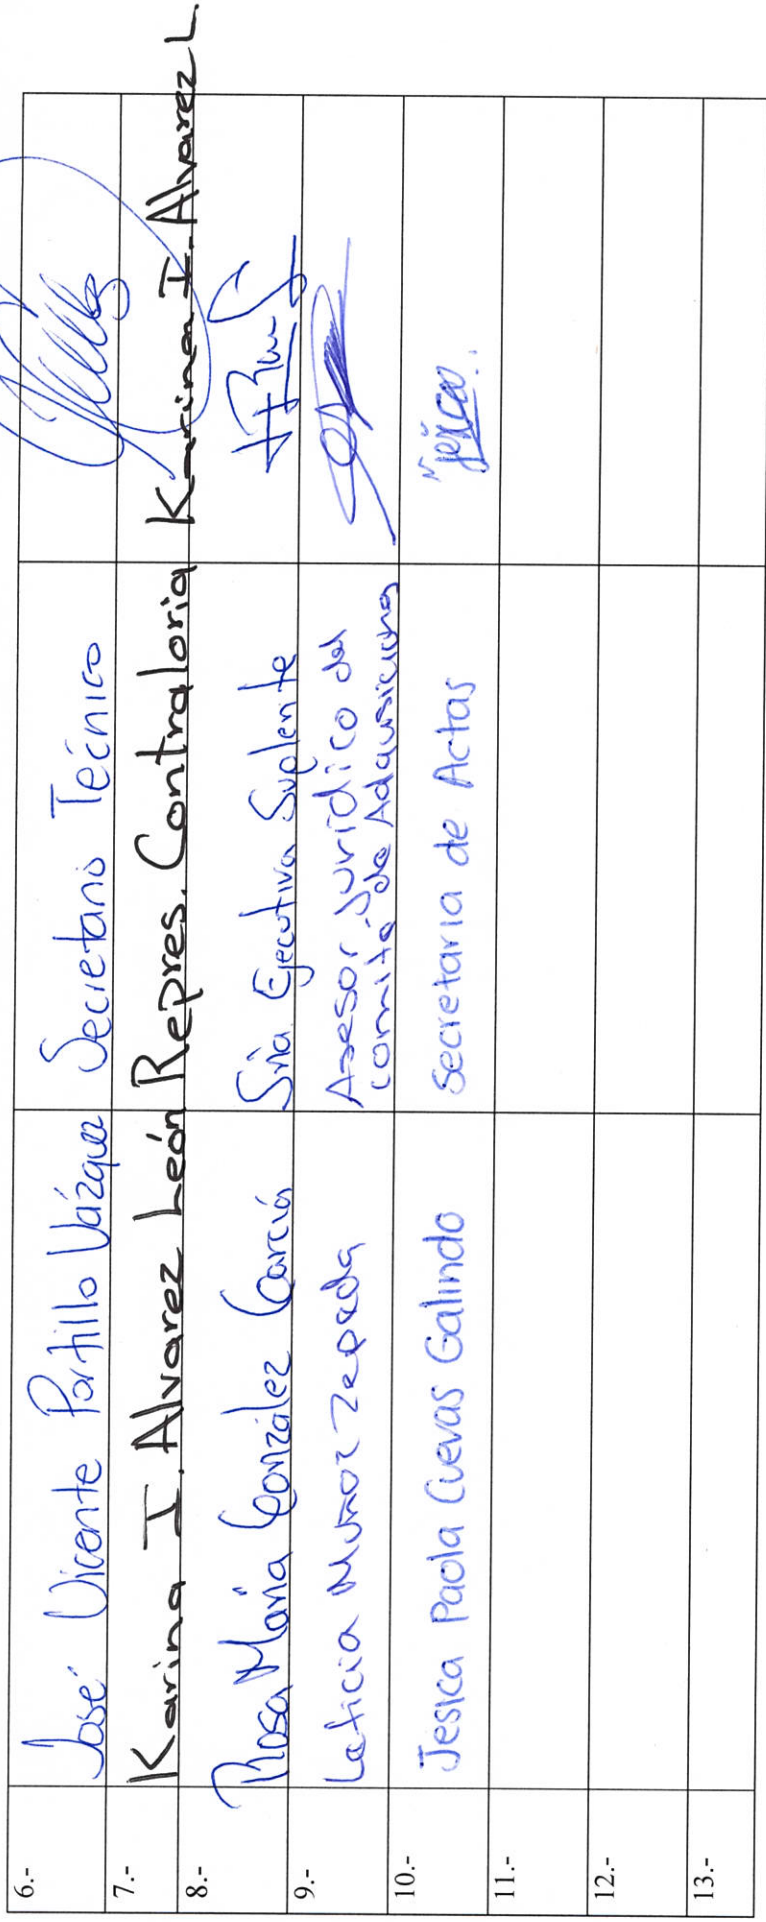 6.- José Vicente Portillo Vázquez Secretario Técnico
7.- Karina I. Alvarez León Repres. Contraloria Karina I. Alvarez L.
8.- Rosa María González García Sria Ejecutiva Suplente
9.- Leticia Muñoz Zepeda Asesor Jurídico del
comite de Adquisiciones
10.- Jesica Paola Cuevas Galindo Secretaria de Actas
11.-
12.-
13.-